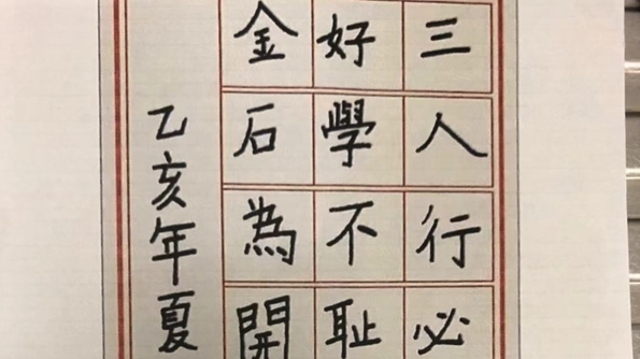 三人行必
好學不恥
金石為開
乙亥年夏